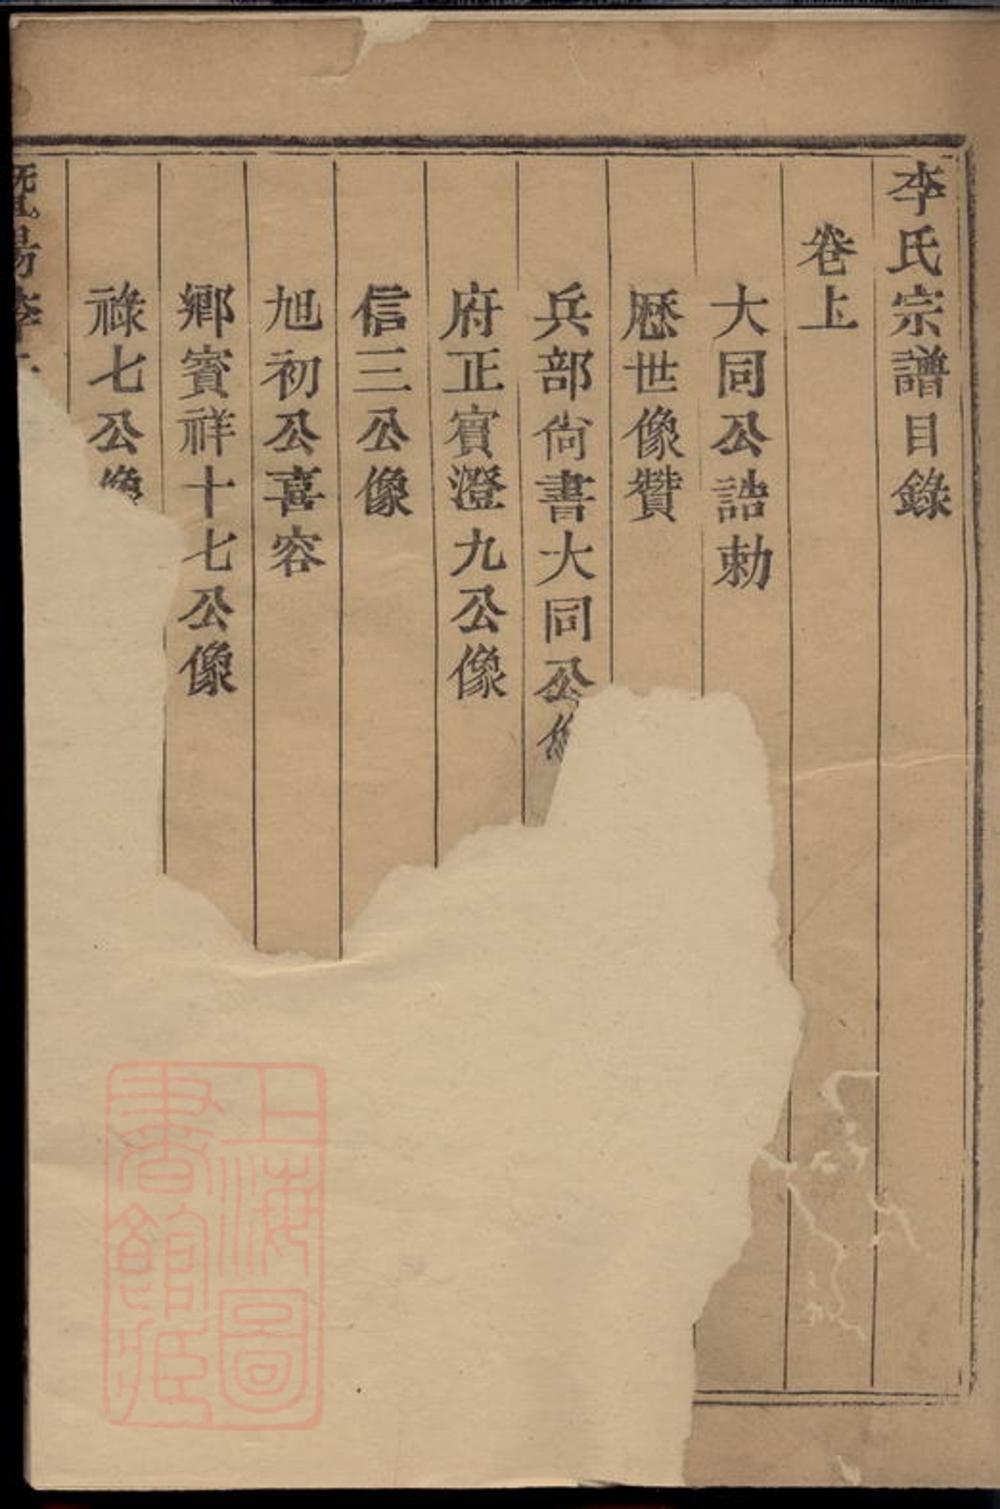 李氏宗譜目錄
卷上
大同公誥勅
歷世像贊
兵部尙書大同公像
府正賓澄九公像
信三公像
旭初公喜容
鄉賓祥十七公像
祿七公像
暨陽李
上海圖
書館藏